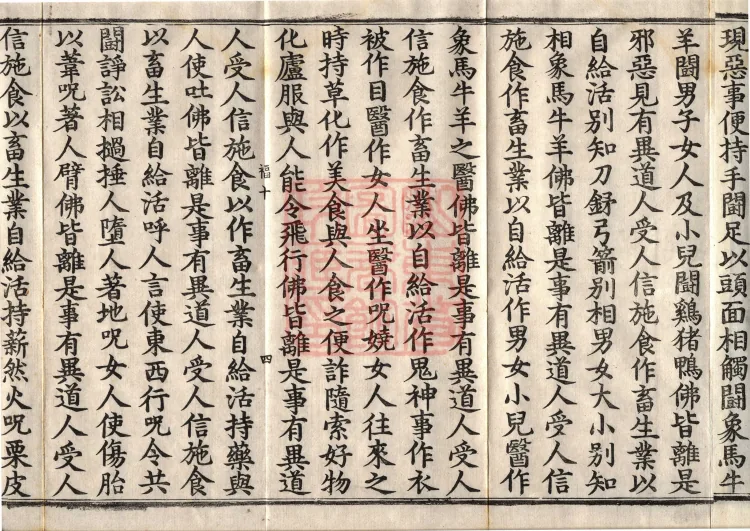 現惡事便持手鬪足以頭面相觸鬪象馬牛
羊鬪男子女人及小兒鬪鷄猪鴨佛皆離是
邪惡見有異道人受人信施食作畜生業以
自給活別知刀鉾弓箭別相男女大小別知
相象馬牛羊佛皆離是事有異道人受人信
施食作畜生業以自給活作男女小兒醫作
象馬牛羊之醫佛皆離是事有異道人受人
信施食作畜生業以自給活作鬼神事作衣
被作目醫作女人坐醫作呪嬈女人往來之
時持草化作美食與人食之便詐隨索好物
化廬服與人能令飛行佛皆離是事有異道
福十 四
人受人信施食以作畜生業自給活持藥與
人使吐佛皆離是事有異道人受人信施食
以畜生業自給活呼人言使東西行呪令共
鬪諍訟相撾捶人墮人著地呪女人使傷胎
以葦呪著人臂佛皆離是事有異道人受人
信施食以畜生業自給活持薪然火呪栗皮